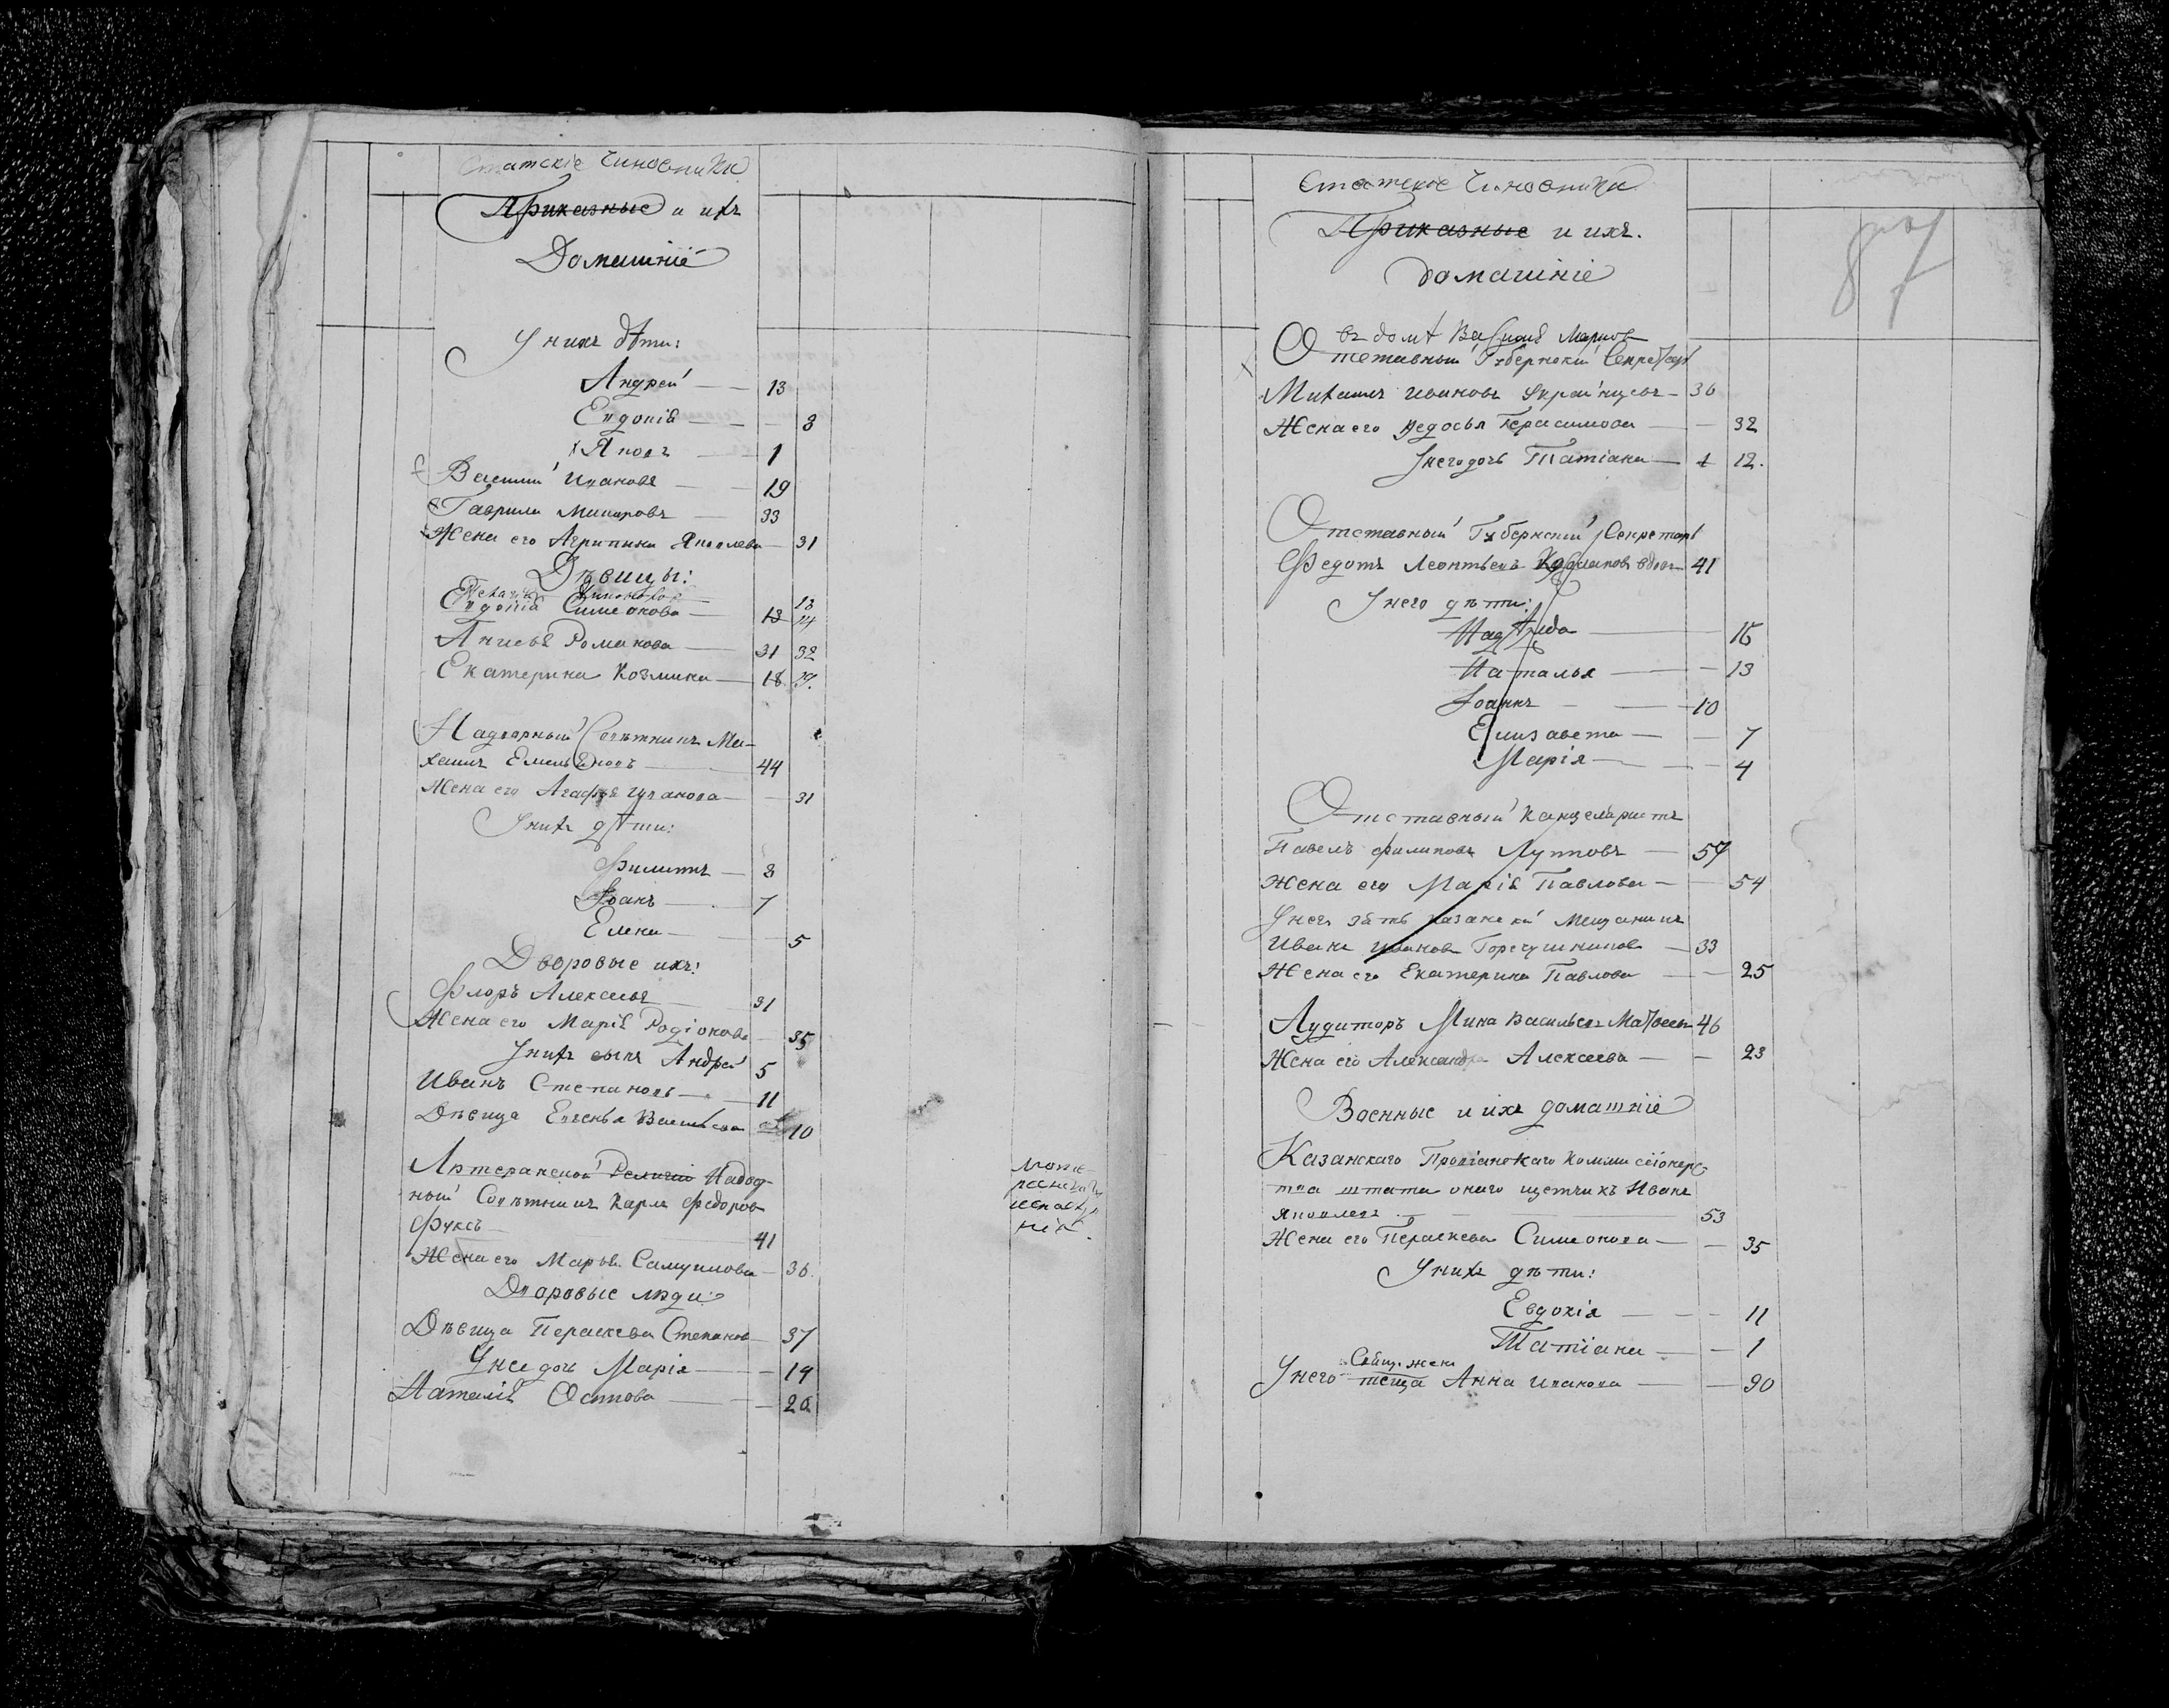 Статскіе Чиновники
Приказные и ихъ
Домашніе
У нихъ дѣти:
Андрей 13
Евдокія 8
Яковъ 1
Василій Ивановъ 19
Гаврила Макаровъ 33
Жена его Агрипина Яковлева 31
Дѣвицы:
13
Евдокія Симеонова 13 14
Анисья Романова 31 32
Екатерина Козмина 18 19.
Надворный Совѣтникъ Ми-
хаилъ Емельяновъ 44
Жена его Агафья Иванова 31
У нихъ дѣти:
Филиппъ 8
Іоанъ 7
Елена 5
Дворовые ихъ:
Флоръ Алексеевъ 31
Жена его Марія Родіонова 35
У нихъ сынъ Андрей 5
Иванъ Степановъ 11
Дѣвица Евгенья Васильева 10
Лютеранской Религіи Надвор-
ный Совѣтникъ Карлъ Федоровъ
Фуксъ 41
Жена его Марья Самуилова 36.
Дворовые люди
Дѣвица Пераскева Степанова 37
У неи дочь Марія 19
Наталія Осипова 26
Люте-
ранскаго
исповѣда-
нія.
Статскіе Чиновники
Приказные и ихъ.
домашніе
87
въ домѣ
Отставный Губернскій Секретарь
Михаилъ Ивановъ Украинцевъ 36
Жена его Федосья Герасимова 32
У него дочь Татіана 1 12.
Отставный Губернскій Секретарь
Федотъ Леонтьевъ вдовъ 41
У него дѣти:
Надѣжда 15
Наталья 13
Іоаннъ 10
Елизавета 7
Марія 4
Отставный Канцеляристъ
Павелъ Филиповъ Лупповъ 57
Жена его Марія Павлова 54
У него зять казанскій Мещанинъ
Иванъ Ивановъ Горчушниковъ 33
Жена его Екатерина Павлова 25
Аудиторъ Мина Васильевъ Матвеевъ 46
Жена его Александра Алексеева 23
Военные и ихъ домашніе
Казанскаго Провіанскаго Коммисіонерс-
тва штата онаго щетчикъ Иванъ
Яковлевъ 53
Жена его Пераскева Симеонова 35
У нихъ дѣти:
Евдокія 11
Татіана 1
жена
У него теща Анна Иванова 90